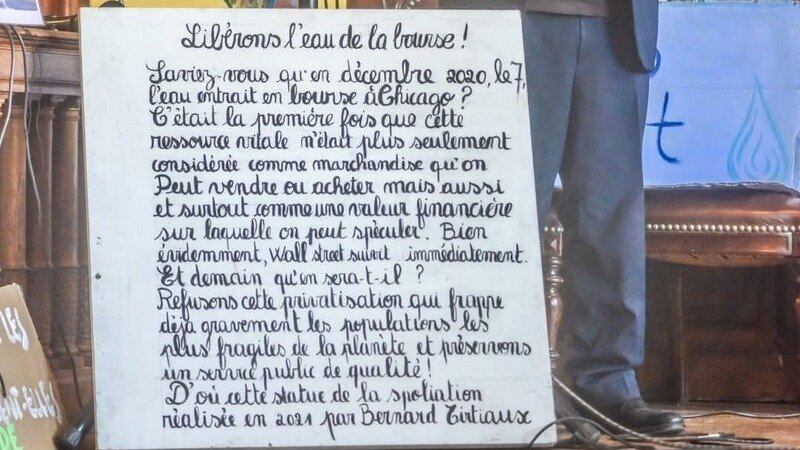 Libérons l'eau de la bourse !
Saviez-vous qu'en décembre 2020, le 7,
l'eau entrait en bourse à Chicago ?
C'était la première fois que cette
ressource vitale n'était plus seulement
considérée comme marchandise qu'on
Peut vendre ou acheter mais aussi
et surtout comme une valeur financière
sur laquelle on peut spéculer. Bien
évidemment, Wall street suivit immédiatement.
Et demain qu'en sera-t-il ?
Refusons cette privatisation qui frappe
déjà gravement les populations les
plus fragiles de la planète et préservons
un service public de qualité !
D'où cette statue de la spoliation
réalisée en 2021 par Bernard Tirtiaux